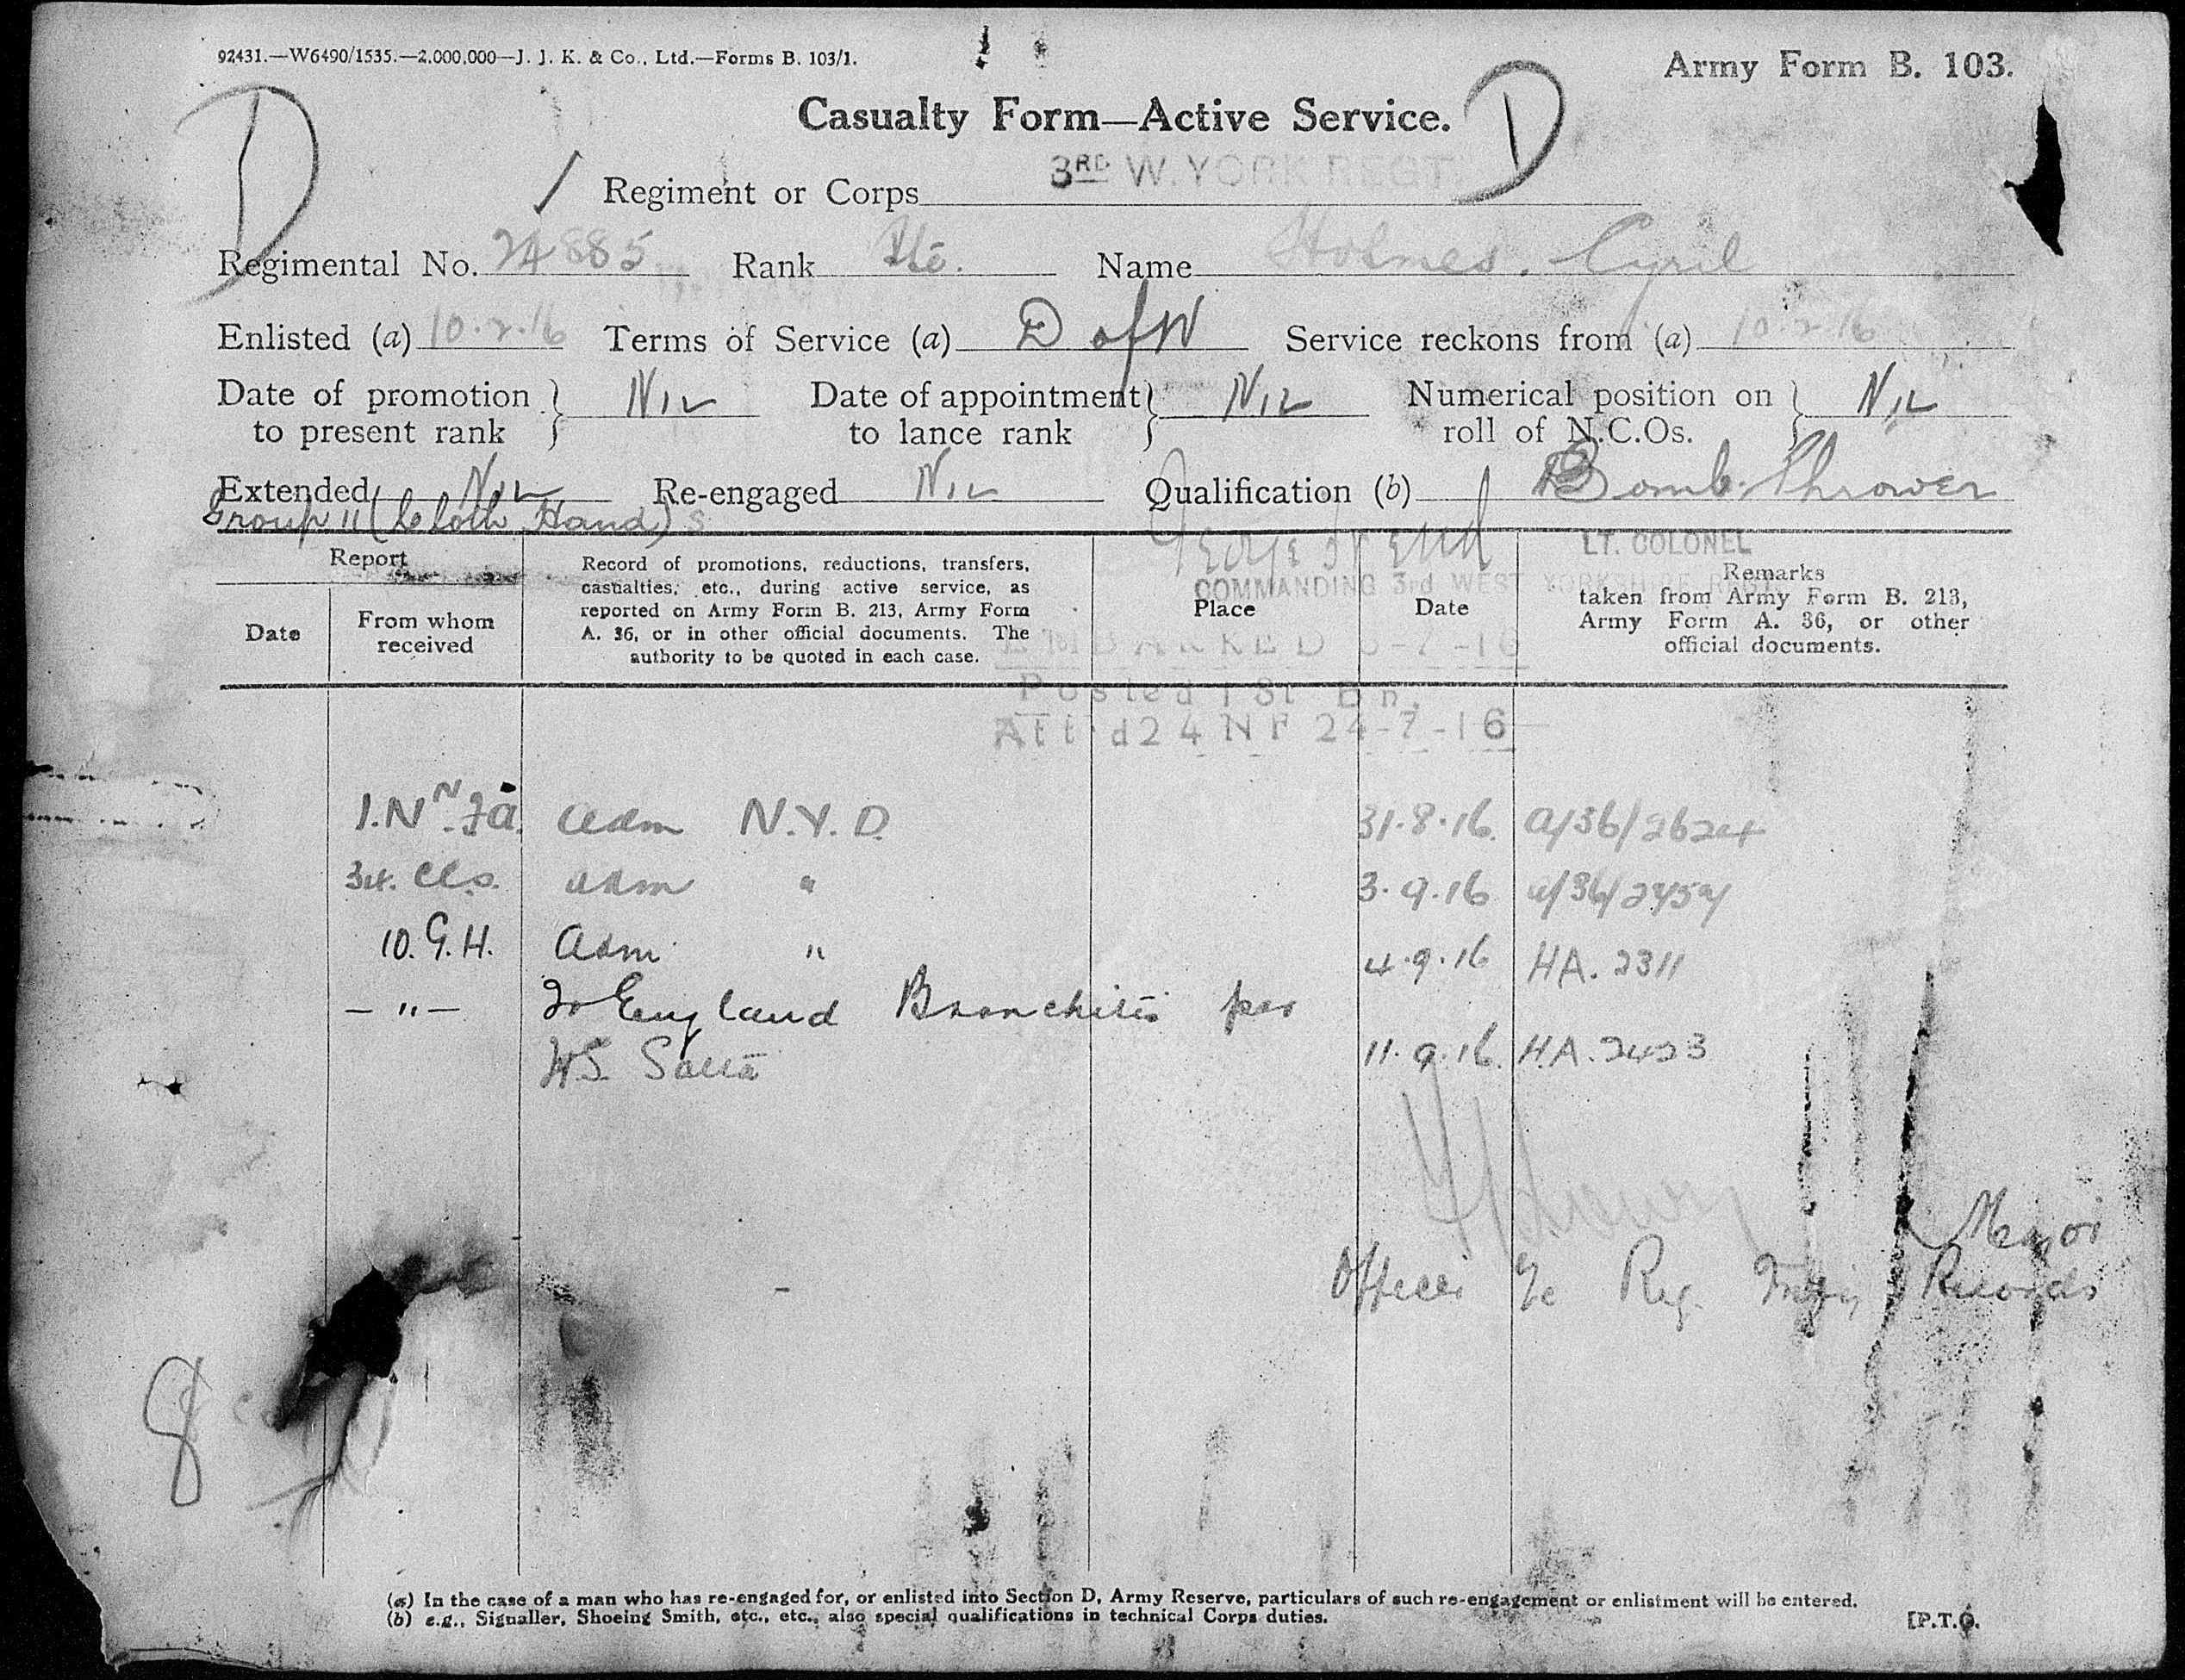 92431.—W6490/1535.—2,000,000—J. J. K. & Co., Ltd.—Forms B. 103/1.
Army Form B. 103.
D
D
Casualty Form—Active Service.
Regiment or Corps 3RD W. YORK REGT
Regimental No. 24885 Rank Pte. Name Holmes. Cyril
Enlisted (a) 10.2.16 Terms of Service (a) D of W Service reckons from (a) 10.2.16
Date of promotion to present rank } Nil Date of appointment to lance rank } Nil Numerical position on roll of N.C.Os. } Nil
Extended Nil Re-engaged Nil Qualification (b) Bomb. Thrower
Group 11 (Cloth Hand)
LT. COLONEL
COMMANDING 3rd WEST YORKSHIRE REGT
Report
Date
From whom received
Record of promotions, reductions, transfers,
casualties, etc., during active service, as
reported on Army Form B. 213, Army Form
A. 36, or in other official documents. The
authority to be quoted in each case.
Place
Date
Remarks
taken from Army Form B. 213,
Army Form A. 36, or other
official documents.
EMBARKED -7-16
Posted 1 St Bn.
Att'd 24 NF 24-7-16
1.Nn. Fa. adm N.Y.D. 31.8.16. a/36/2624
34. CCS. adm " 3.9.16
10. G.H. Adm " 4.9.16 HA. 2311
— " — To England Bronchitis per
H.S. 11.9.16. H.A. 2423
Major
Officer i/c Reg. Records
8
(a) In the case of a man who has re-engaged for, or enlisted into Section D, Army Reserve, particulars of such re-engagement or enlistment will be entered.
(b) e.g., Signaller, Shoeing Smith, etc., etc., also special qualifications in technical Corps duties.
[P.T.O.